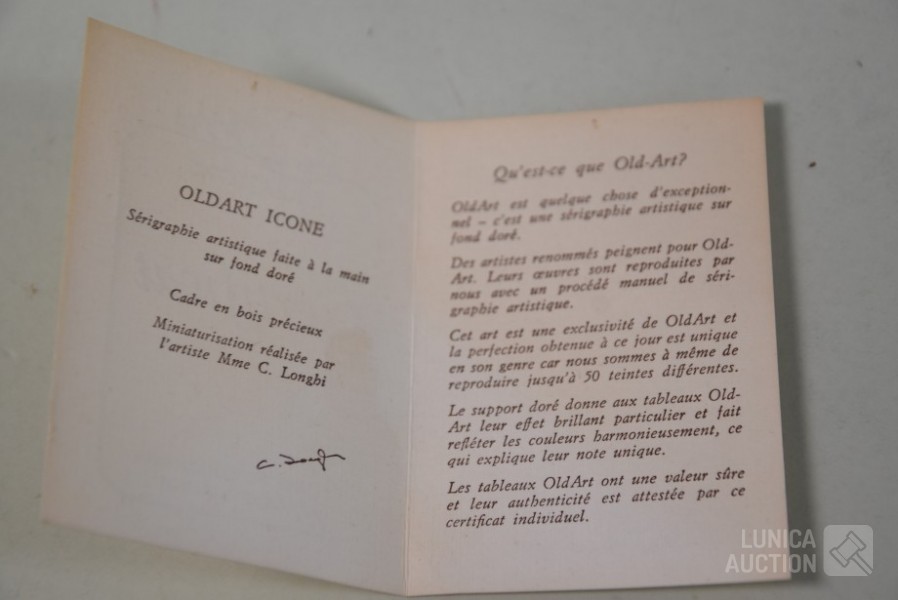 OLDART ICONE
Sérigraphie artistique faite à la main
sur fond doré
Cadre en bois précieux
Miniaturisation réalisée par
l'artiste Mme C. Longhi
Qu'est-ce que Old-Art?
OldArt est quelque chose d'exception-
nel – c'est une sérigraphie artistique sur
fond doré.
Des artistes renommés peignent pour Old-
Art. Leurs œuvres sont reproduites par
nous avec un procédé manuel de séri-
graphie artistique.
Cet art est une exclusivité de OldArt et
la perfection obtenue à ce jour est unique
en son genre car nous sommes à même de
reproduire jusqu'à 50 teintes différentes.
Le support doré donne aux tableaux Old-
Art leur effet brillant particulier et fait
refléter les couleurs harmonieusement, ce
qui explique leur note unique.
Les tableaux OldArt ont une valeur sûre
et leur authenticité est attestée par ce
certificat individuel.
LUNICA
AUCTION